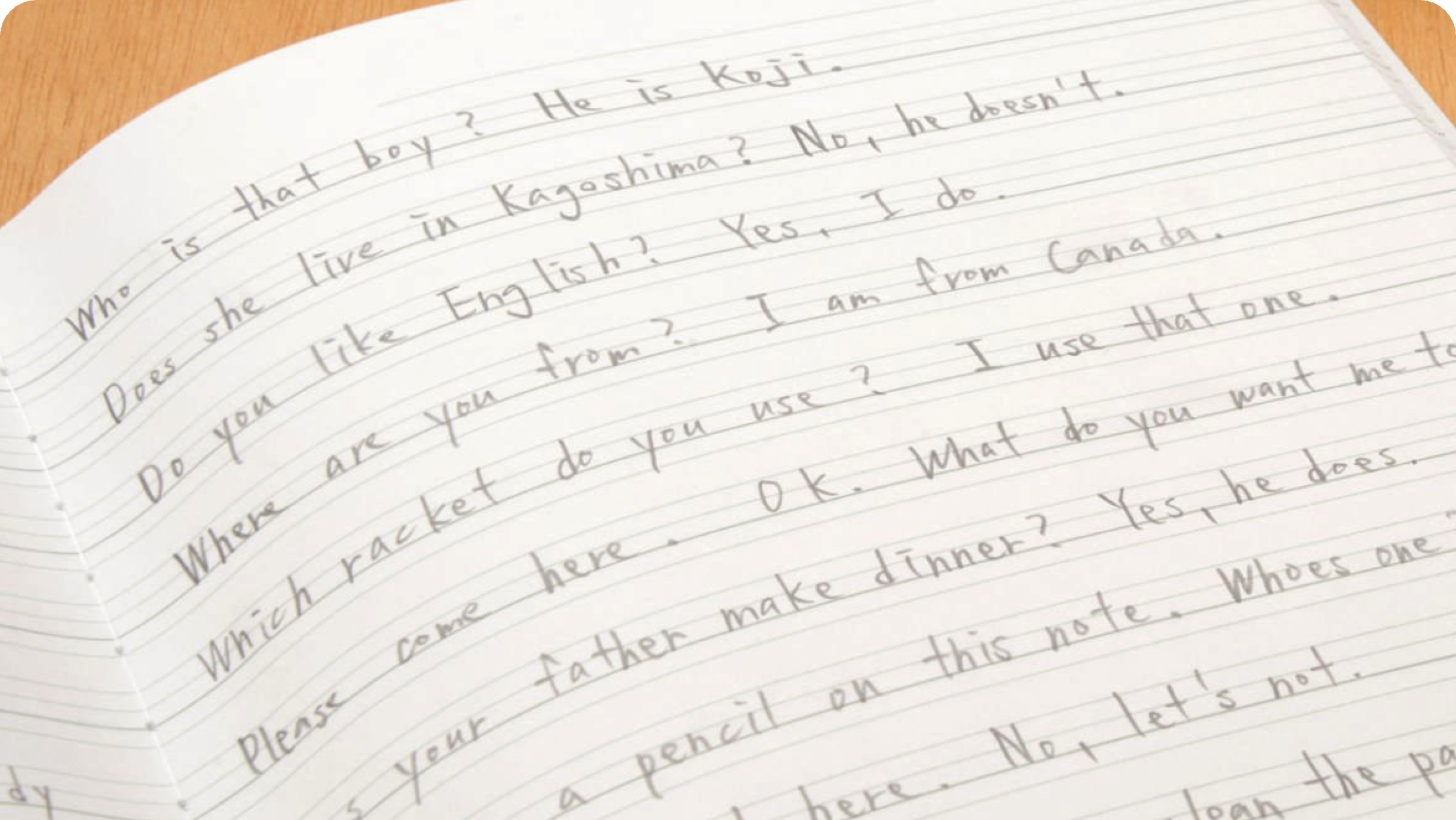 Who is that boy? He is Koji.
Does she live in Kagoshima? No, he doesn't.
Do you like English? Yes, I do.
Where are you from? I am from Canada.
Which racket do you use? I use that one.
Please come here. Ok. What do you want me to
your father make dinner? Yes, he does.
a pencil on this note. Whoes one
here. No, let's not.
the
dy